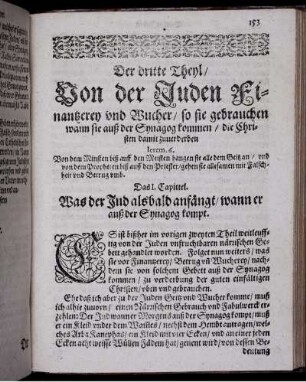 153
Der dritte Theyl/
Von der Juden Fi-
nantzerey vnd Wucher/ so sie gebrauchen
wann sie auß der Synagog kommen/ die Chri-
sten damit zuuerderben
Jerem. 6.
Von dem Minsten biß auff den Meisten hangen sie alle dem Geitz an/ vnd
von dem Propheten biß auff den Priester/ gehen sie allesamen mit Falsch-
heit vnd Betrug vmb.
Das I. Capittel.
Was der Jud alsbald anfängt/ wann er
auß der Synagog kompt.
ES ist bißher im vorigen zweyten Theil weitleuff-
tig von der Juden vnfruchtbaren närrischen Ge-
bett gehandlet worden. Folget nun weiters/ was
sie vor Finantzerey/ Betrug vñ Wucherey/ nach-
dem sie von solchem Gebett auß der Synagog
kommen/ zu verderbung der guten einfältigen
Christen/ vben vnd gebrauchen.
Ehe daß ich aber zu der Juden Geitz vnd Wucher komme/ muß
ich alhie zuuorn/ einen Närrischen Gebrauch vnd Fabulwerck er-
zehlen: Der Jud wann er Morgens auß der Synagog kompt/ muß
er ein Kleid vnder dem Wambes/ nechst dem Hembt antragen/ wel-
ches Arba Kanephas/ ein Kleid mit vier Ecken/ vnd an einer jeden
Ecken acht weisse Wüllen Fädem hat/ genent wird/ von dessen Be-
deutung